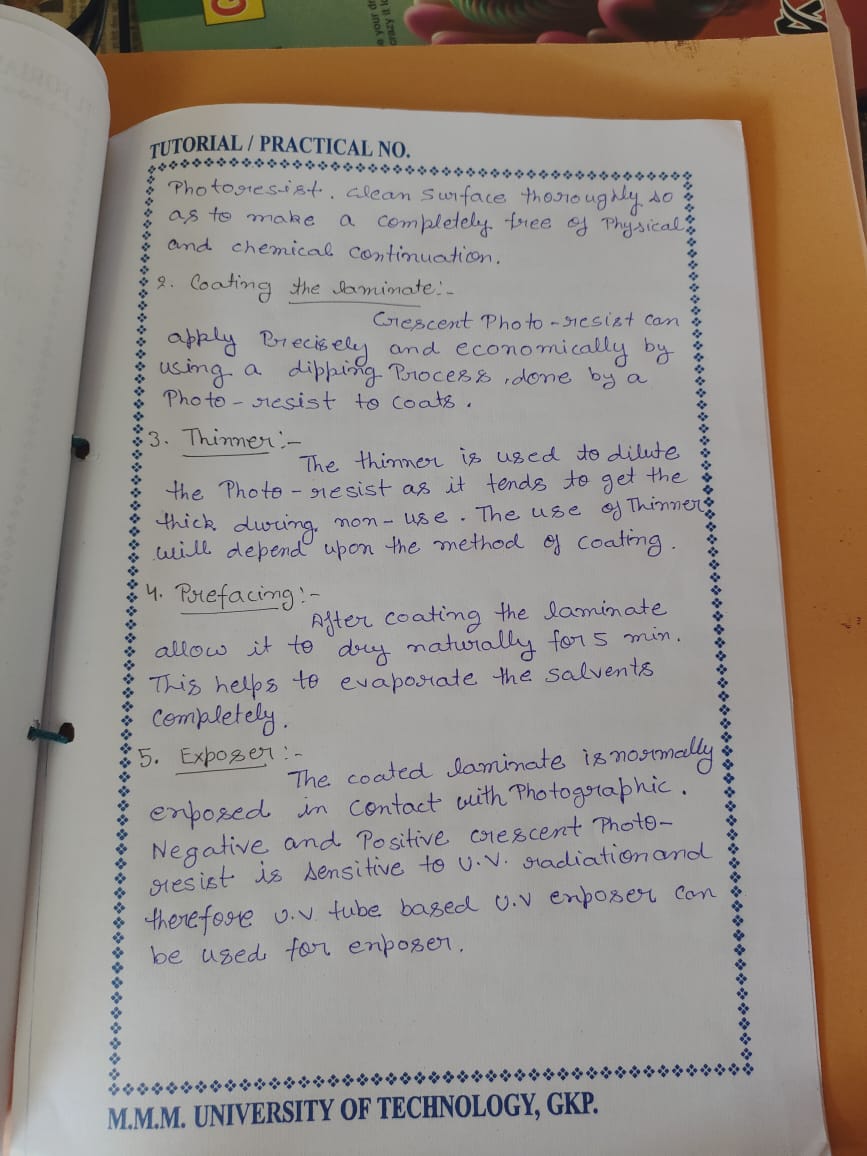 TUTORIAL / PRACTICAL NO.
Photoresist. Clean surface thoroughly so
as to make a completely free of Physical
and chemical continuation.
2. Coating the laminate:-
Crescent Photo-resist can
apply Precisely and economically by
using a dipping Process, done by a
Photo-resist to coats.
3. Thinner:-
The thinner is used to dilute
the Photo-resist as it tends to get the
thick during non-use. The use of Thinner
will depend upon the method of coating.
4. Prefacing:-
After coating the laminate
allow it to dry naturally for 5 min.
This helps to evaporate the salvents
completely.
5. Exposer:-
The coated laminate is normally
enposed in contact with Photographic.
Negative and Positive crescent Photo-
resist is sensitive to U.V. radiation and
therefore U.V tube based U.V enposer can
be used for enposer.
M.M.M. UNIVERSITY OF TECHNOLOGY, GKP.